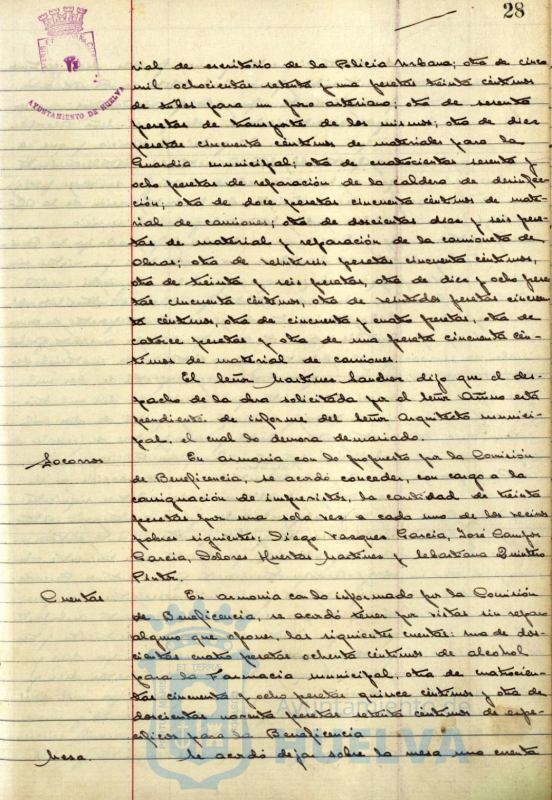 28
AYUNTAMIENTO DE HUELVA
rial de escritorio de la Policia Urbana; otra de cinco
mil ochocientas setenta y una pesetas treinta céntimos
de tubos para un pozo artesiano; otra de sesenta
pesetas de transporte de los mismos; otra de diez
pesetas cincuenta céntimos de materiales para la
Guardia municipal; otra de cuatrocientas sesenta y
ocho pesetas de reparación de la caldera de desinfec-
ción; otra de doce pesetas cincuenta céntimos de mate-
rial de camiones; otra de doscientas diez y seis pese-
tas de material y reparación de la camioneta de
Obras; otra de veintiseis pesetas cincuenta céntimos,
otra de treinta y seis pesetas, otra de diez y ocho pese
tas cincuenta céntimos, otra de veintidos pesetas cincuen
ta céntimos, otra de cincuenta y cuatro pesetas, otra de
catorce pesetas y otra de una peseta cincuenta cén-
timos de material de camiones.
El Señor Martinez Sanchez dijo que el des-
pacho de la obra solicitada por el Señor está
pendiente de informe del Señor Arquitecto munici-
pal, el cual lo demora demasiado.
Socorros
En armonia con lo propuesto por la Comisión
de Beneficencia, se acordó conceder, con cargo a la
consignación de imprevistos, la cantidad de treinta
pesetas por una sola vez a cada uno de los vecinos
pobres siguientes: Diego Vazquez Garcia, José Campos
Garcia, Dolores Huertas Martinez y Sebastiana Quintero
Pinto.
Cuentas
En armonia con lo informado por la Comisión
de Beneficencia, se acordó tener por vistas sin reparo
alguno que oponer, las siguientes cuentas: una de dos-
cientas cuatro pesetas ochenta céntimos de alcohol
para la Farmacia municipal, otra de cuatrocien-
tas cincuenta y ocho pesetas quince céntimos y otra de
doscientas noventa pesetas setenta céntimos de espe-
cificos para la Beneficencia
Mesa.
Se acordó dejar sobre la mesa una cuenta
Ayuntamiento de
HUELVA